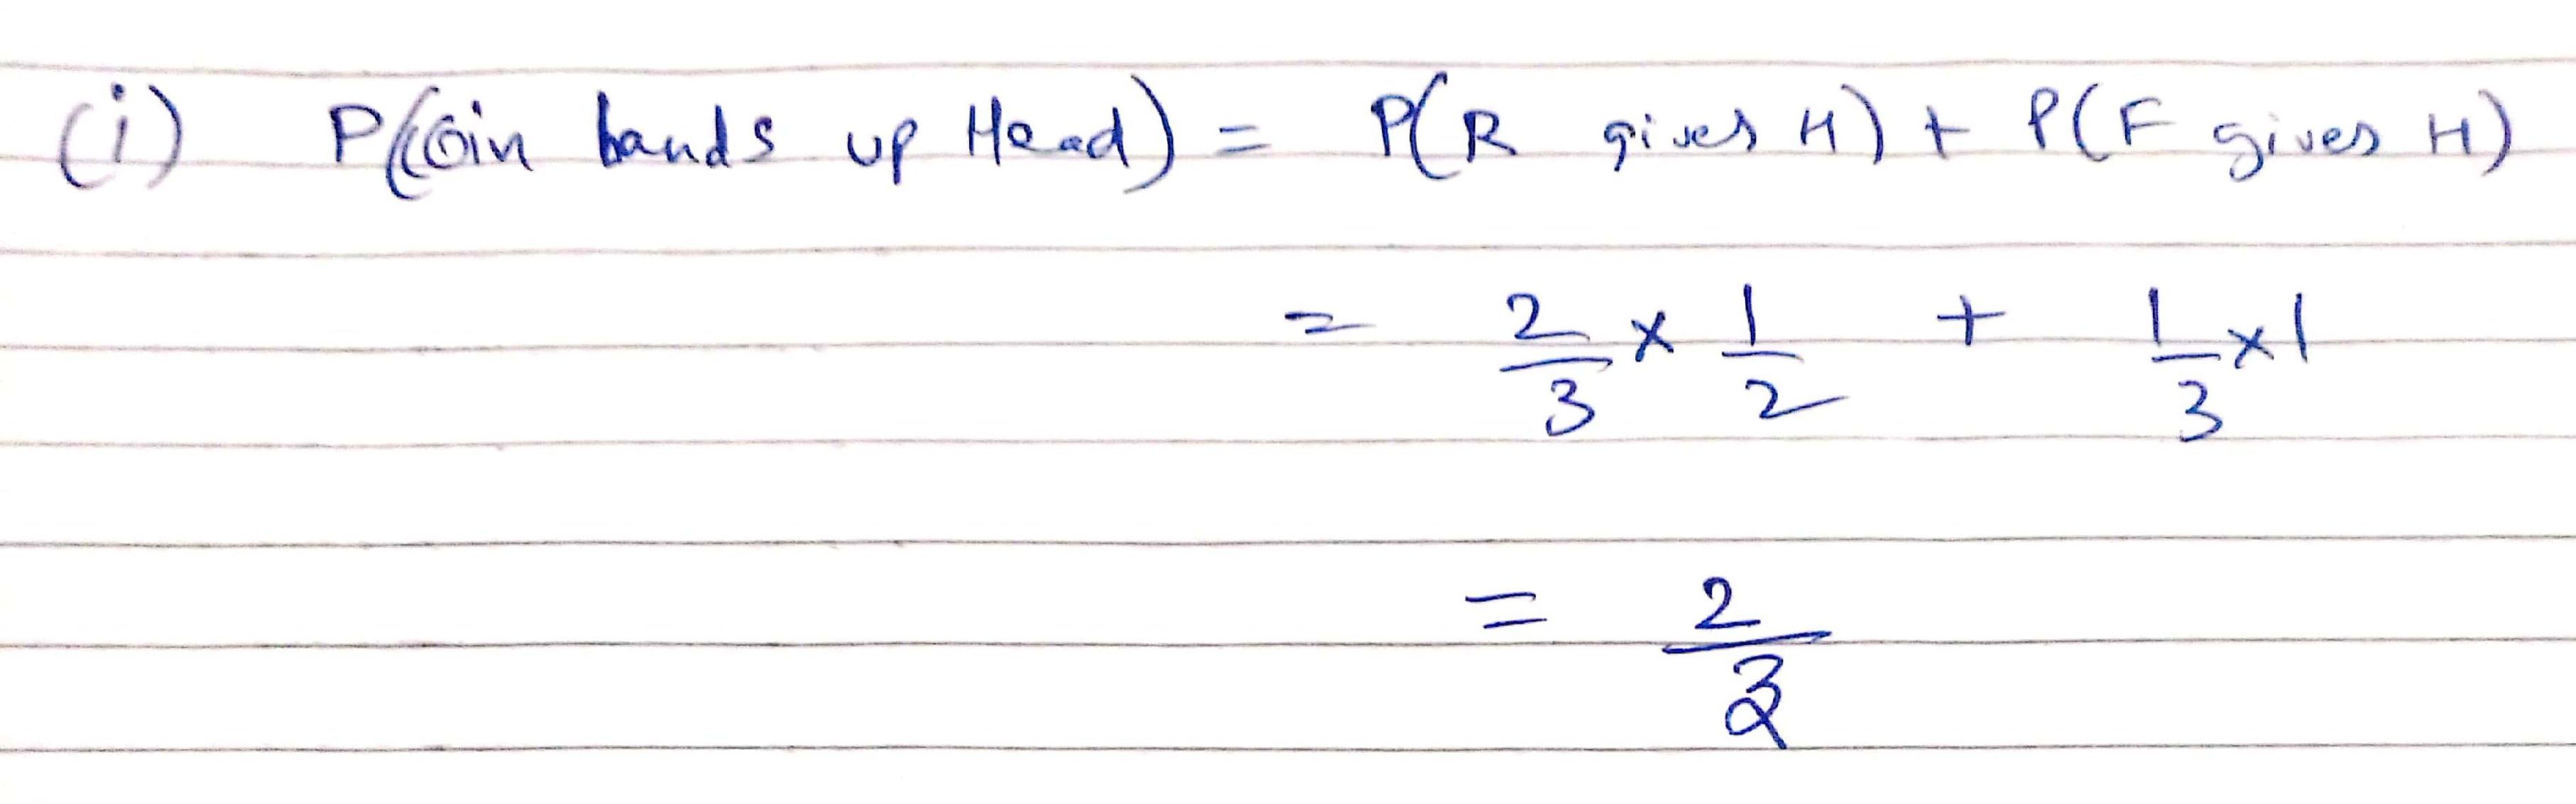 (i) P(Coin lands up Head) = P(R gives H) + P(F gives H)
= 2/3 × 1/2 + 1/3 × 1
= 2/3